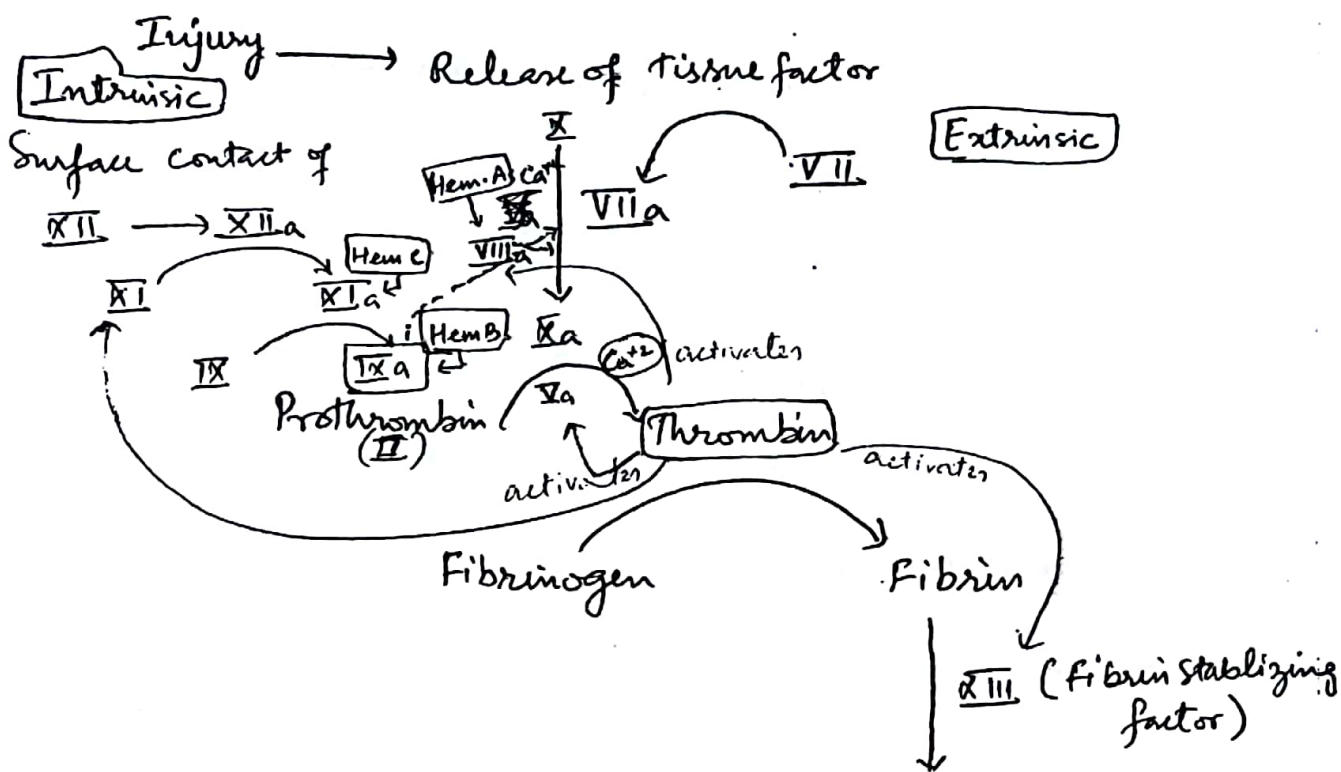 Injury → Release of tissue factor
Intrinsic
Extrinsic
Surface contact of
X
VII
Hem. A
Ca++
VIIa
XII → XIIa
VIIIa
Hem C
XI
XIa
Hem B
Xa
Ca+2
activates
IX
IXa
Va
Prothrombin
(II)
Thrombin
activates
activates
Fibrinogen
Fibrin
XIII (Fibrin stablizing
factor)